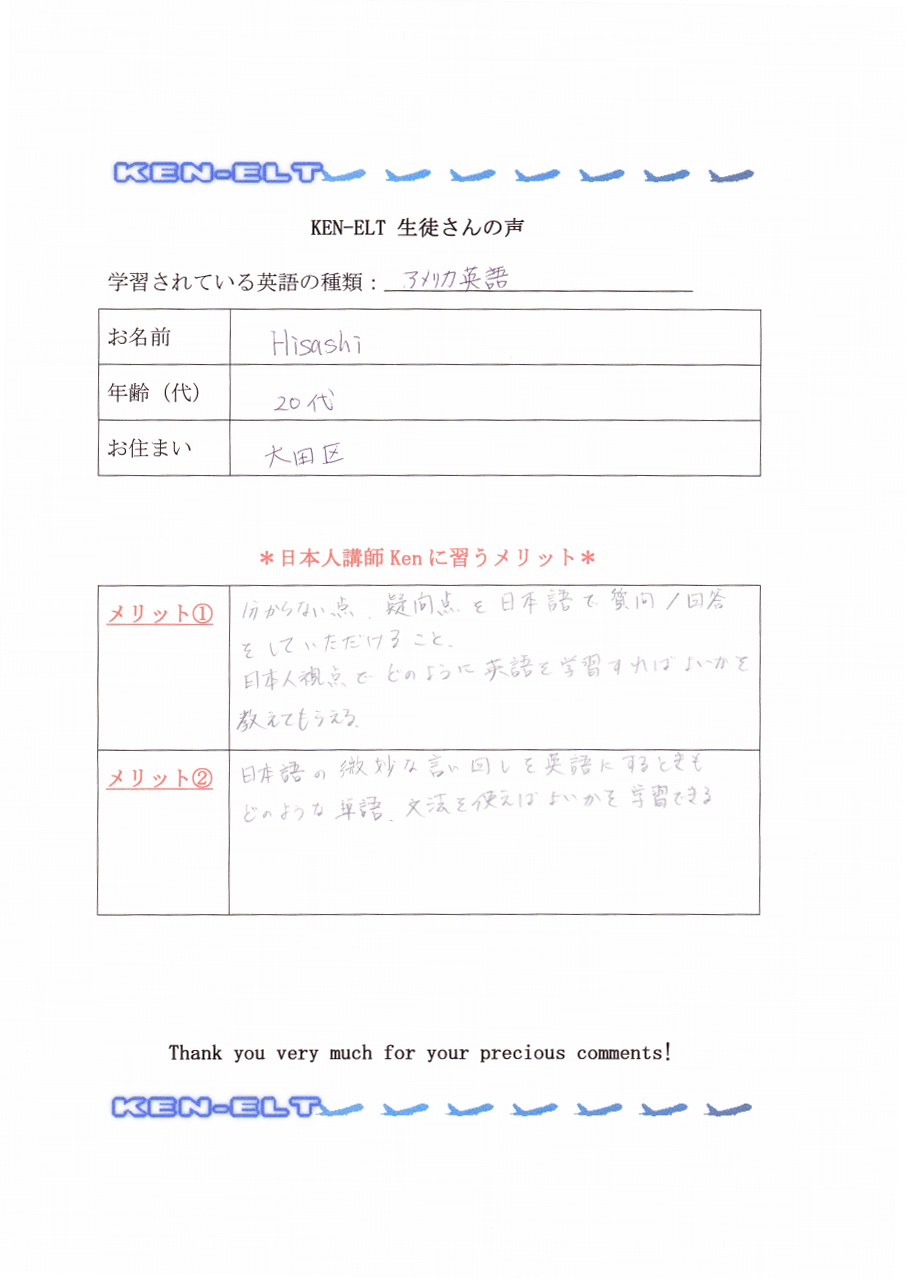 KEN-ELT
KEN-ELT 生徒さんの声
学習されている英語の種類：アメリカ英語
お名前 Hisashi
年齢（代） 20代
お住まい 大田区
＊日本人講師Kenに習うメリット＊
メリット① 分からない点、疑問点を日本語で質問/回答
をしていただけること、
日本人視点でどのように英語を学習すればよいかを
教えてもらえる。
メリット② 日本語の微妙な言い回しを英語にするときも
どのような単語、文法を使えばよいかを学習できる
Thank you very much for your precious comments!
KEN-ELT